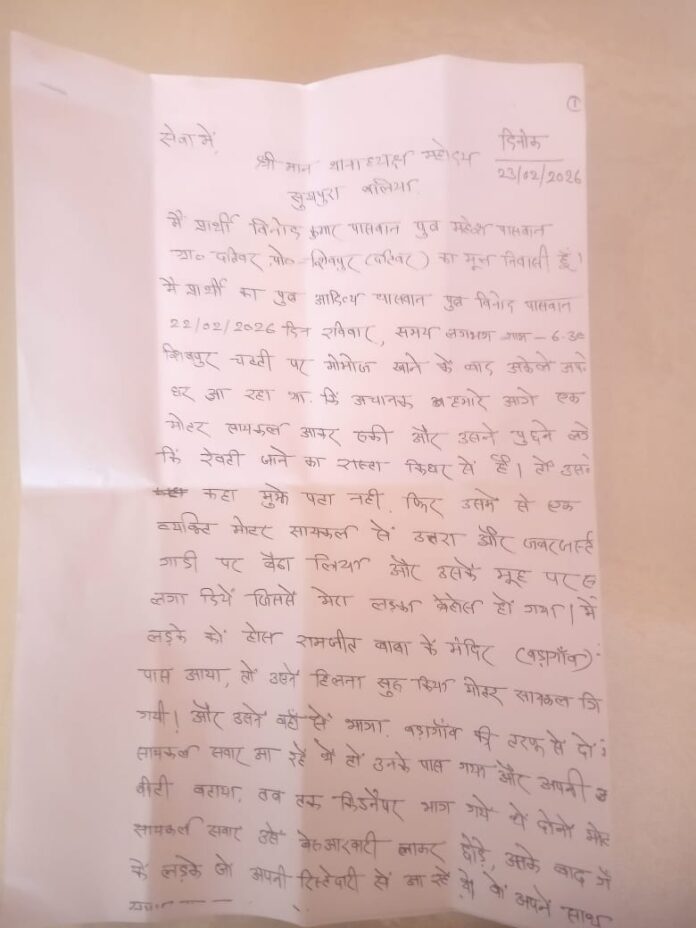 ①
सेवा में,
दिनांक
श्री मान थानाध्यक्ष महोदय
23/02/2026
सुखपुरा बलिया
मैं प्रार्थी विनोद कुमार पासवान पुत्र महेश पासवान
ग्रा० दतिवर पो०-शिवपुर (दतिवर) का मूल निवासी हूँ।
मैं प्रार्थी का पुत्र आदित्य पासवान पुत्र विनोद पासवान
22/02/2026 दिन रविवार, समय लगभग शाम - 6.30
शिवपुर चट्टी पर मोमोज खाने के बाद अकेले अपने
घर आ रहा था. कि अचानक हमारे आगे एक
मोटर सायकल आकर रुकी और उसने पुछने लगे
कि रेवती जाने का रास्ता किधर से हैं। तो उसने
कहा मुझे पता नही. फिर उसमें से एक
व्यक्ति मोटर सायकल से उतरा और जबरजस्ती
गाडी पर बैठा लिया और उसके मूह पर
लगा दियें जिससे मेरा लड़का बेहोस हो गया। मे
लड़के को होस रामजीत बाबा के मंदिर (बड़ागाँव)
पास आया, तो उसने हिलना सुरु किया मोटर सायकल गि
गयी। और उसने वहाँ से भागा. बड़ागाँव की तरफ से दो
सायकल सवार आ रहें थे तो उनके पास गया और अपनी
बीती बताया, तब तक किडनैपर भाग गये थे दोनो मोट
सायकल सवार उसे लाकर छोड़े, उसके बाद गाँ
के लड़के जो अपनी रिस्तेदारी से आ रहें थे वो अपने साथ